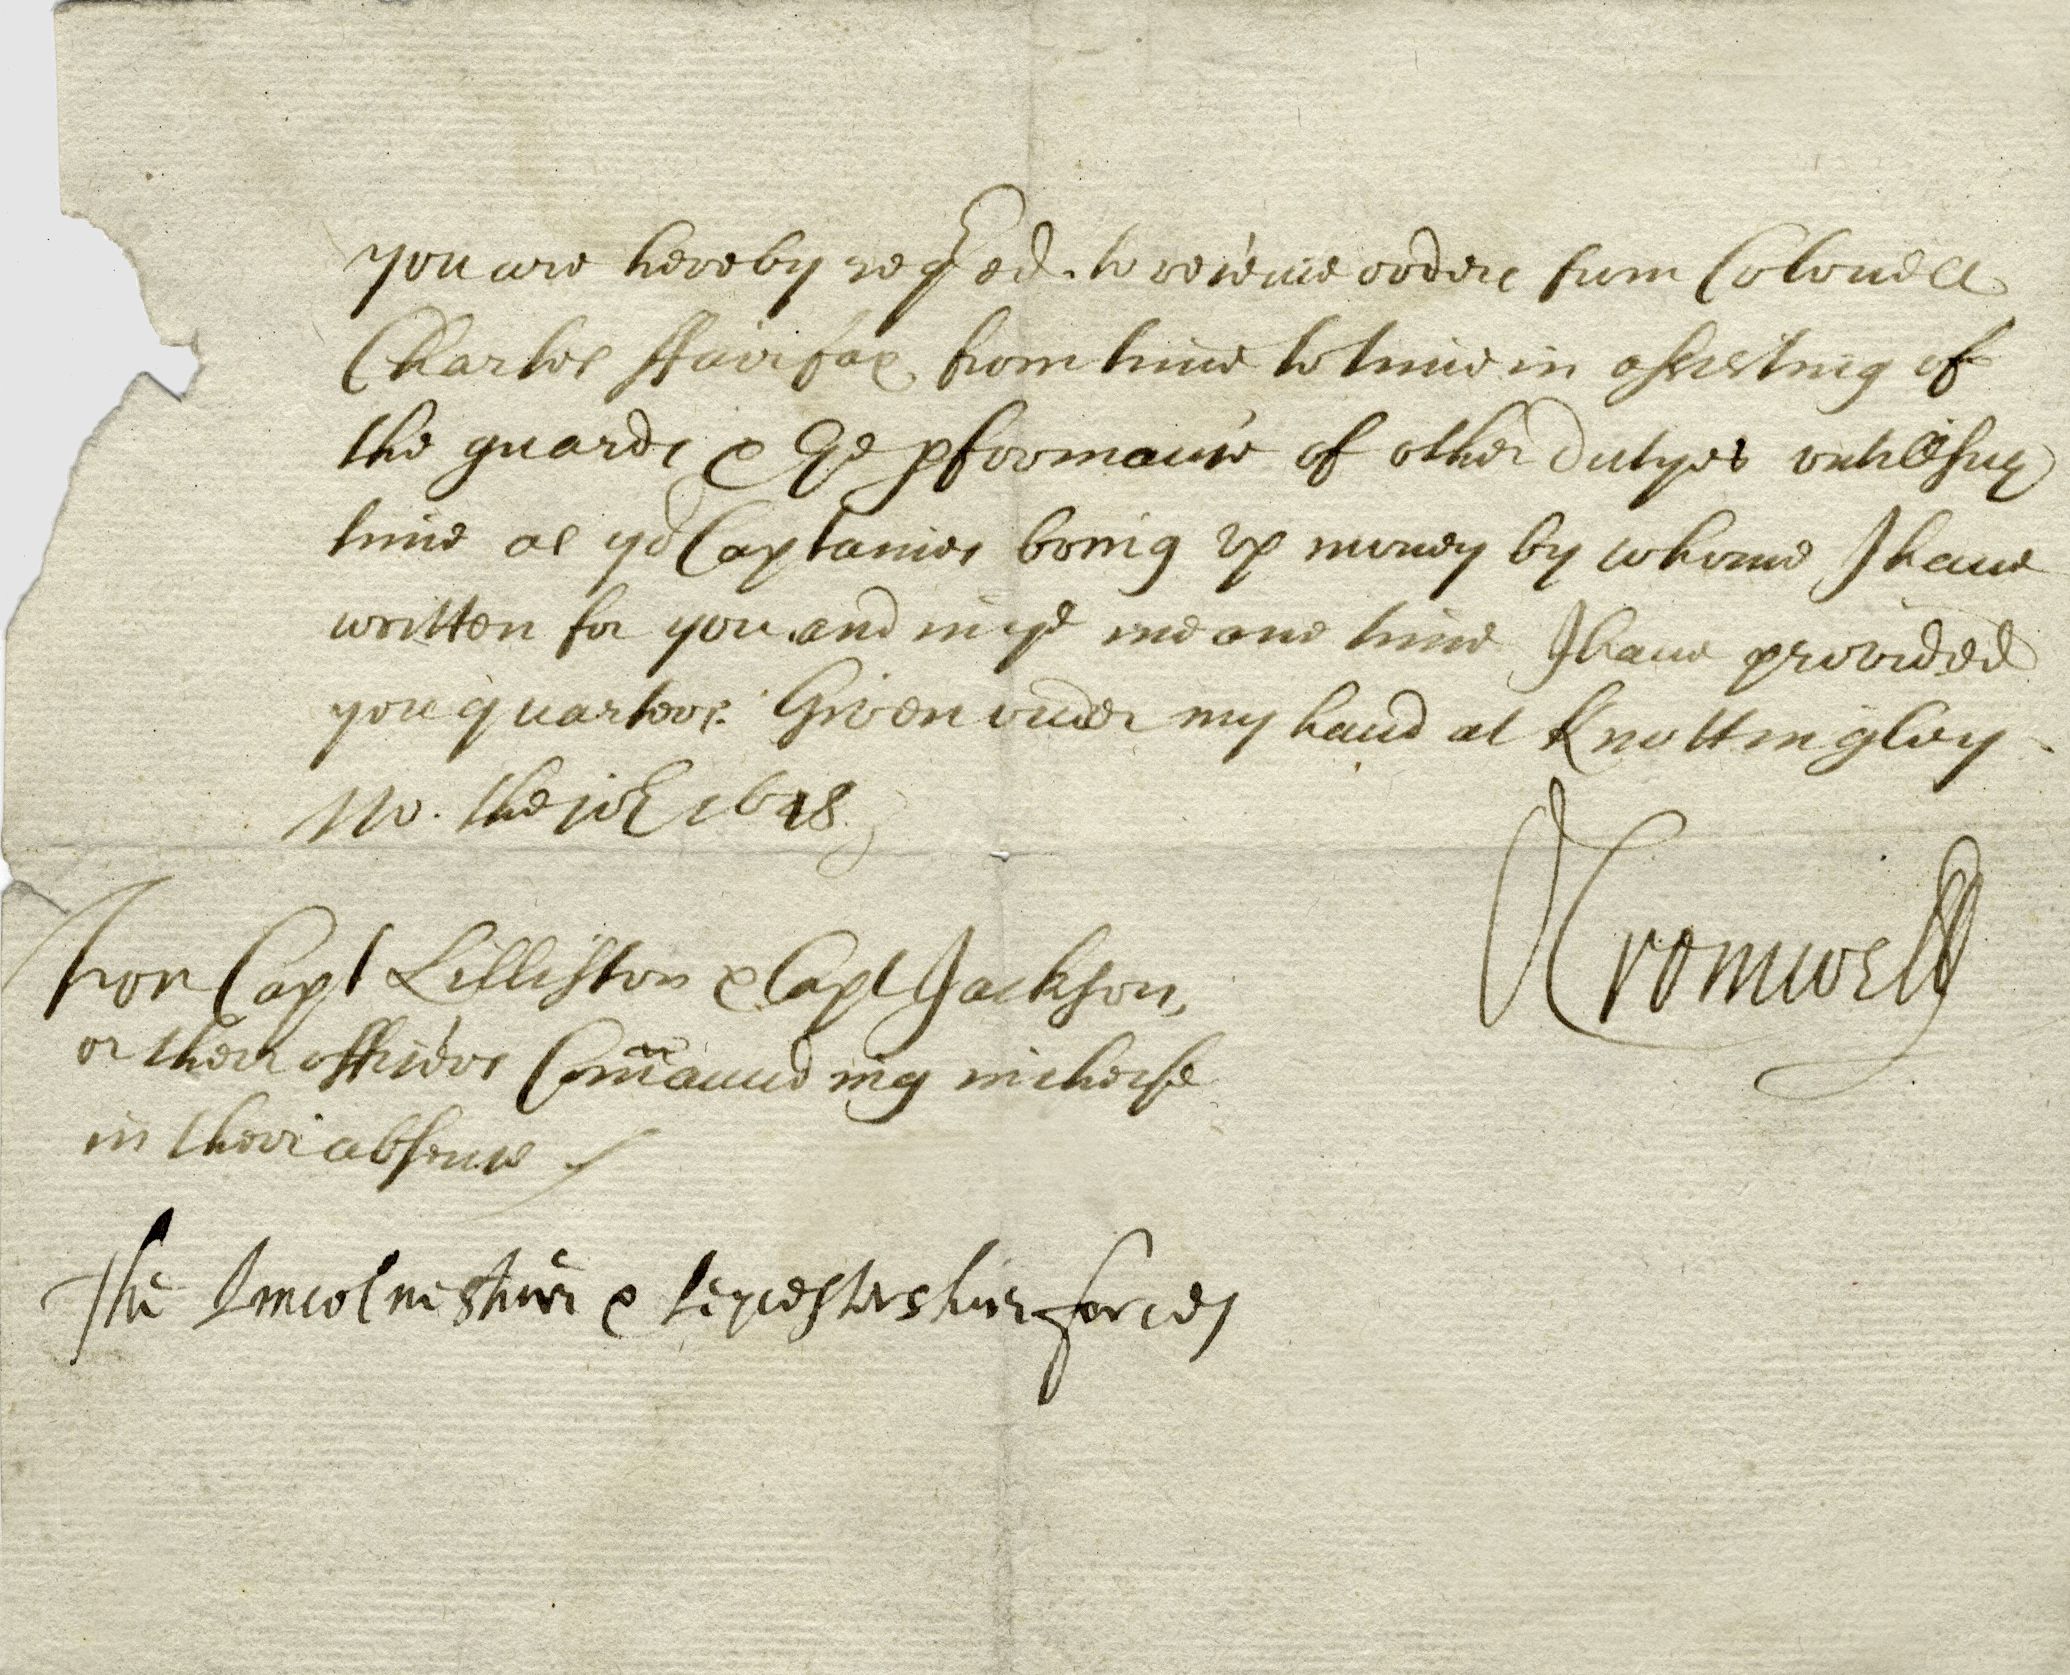 you are hereby reqed to receiue orders from Colonell
Charles ffairfax from time to time in assisting of
the guards & ye pformance of other dutyes vntill such
time as yor Captaines bring vp money by whome I haue
written for you and in ye meane time I haue provided
you quarters. Given under my hand at Knottingley
No. the 1648
O Cromwell
For Capt Lilliston & Capt Jackson,
or their officers Comaunding in cheife
in their absence
The Lincolneshire & Leycestershire forces